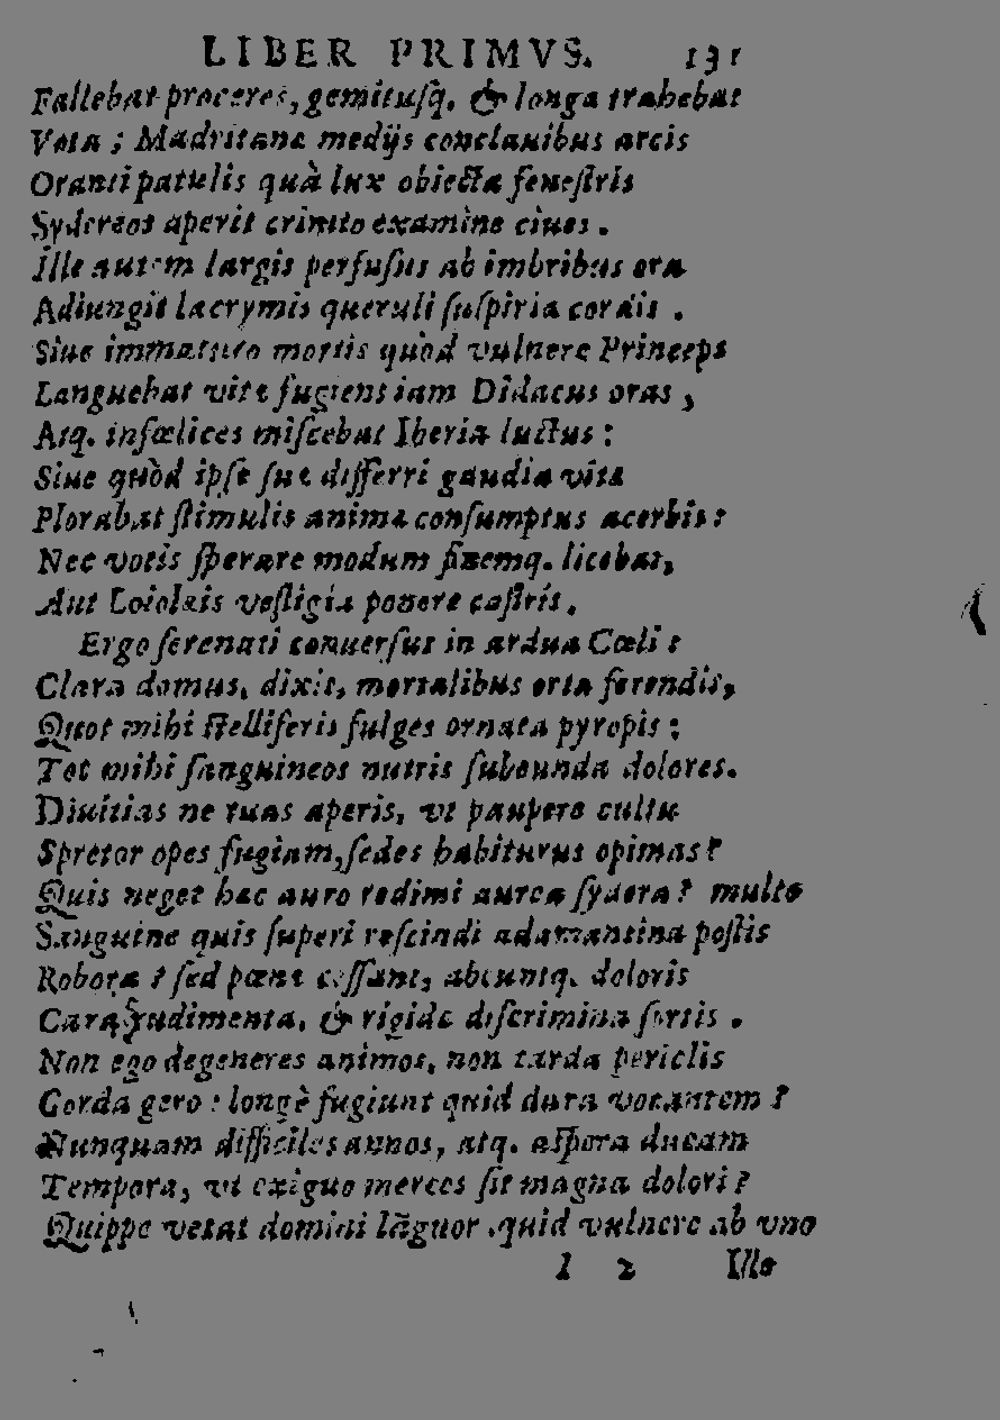 LIBER PRIMVS. 131
Fallebat proceres, gemituſq. & longa trahebat
Vota ; Madritanæ medijs conclauibus arcis
Oranti patulis quà lux obiecta feneſtris
Sydereos aperit crinito examine ciues .
Ille autem largis perfuſus ab imbribus ora
Adiungit lacrymis queruli ſuſpiria cordis .
Siue immaturo mortis quòd vulnere Princeps
Languebat vitæ fugiens iam Didacus oras ,
Atq. infœlices miſcebat Iberia luctus :
Siue quòd ipſe ſuæ differri gaudia vitæ
Plorabat ſtimulis animæ conſumptus acerbis:
Nec votis ſperare modum finemq. licebat,
Aut Loiolæis veſtigia ponere caſtris.
Ergo ſerenati conuerſus in ardua Cœli :
Clara domus, dixit, mortalibus orta ferendis,
Quot mihi ſtelliferis fulges ornata pyropis ;
Tot mihi ſanguineos nutris ſubeunda dolores.
Diuitias ne tuas aperis, vt paupere cultu
Spretor opes fugiam, ſedes habiturus opimas?
Quis neget hac auro redimi aurea ſydera? multo
Sanguine quis ſuperi reſcindi adamantina poſtis
Robora ? ſed pœnæ ceſſant, abeuntq. doloris
Cara rudimenta, & rigidæ diſcrimina ſortis .
Non ego degeneres animos, non tarda periclis
Corda gero : longè fugiunt quid dura vocantem ?
Nunquam difficiles annos, atq. aſpera ducam
Tempora, vt exiguo merces ſit magna dolori?
Quippe vetat domini lãguor . quid vulnere ab vno
I 2 Illo